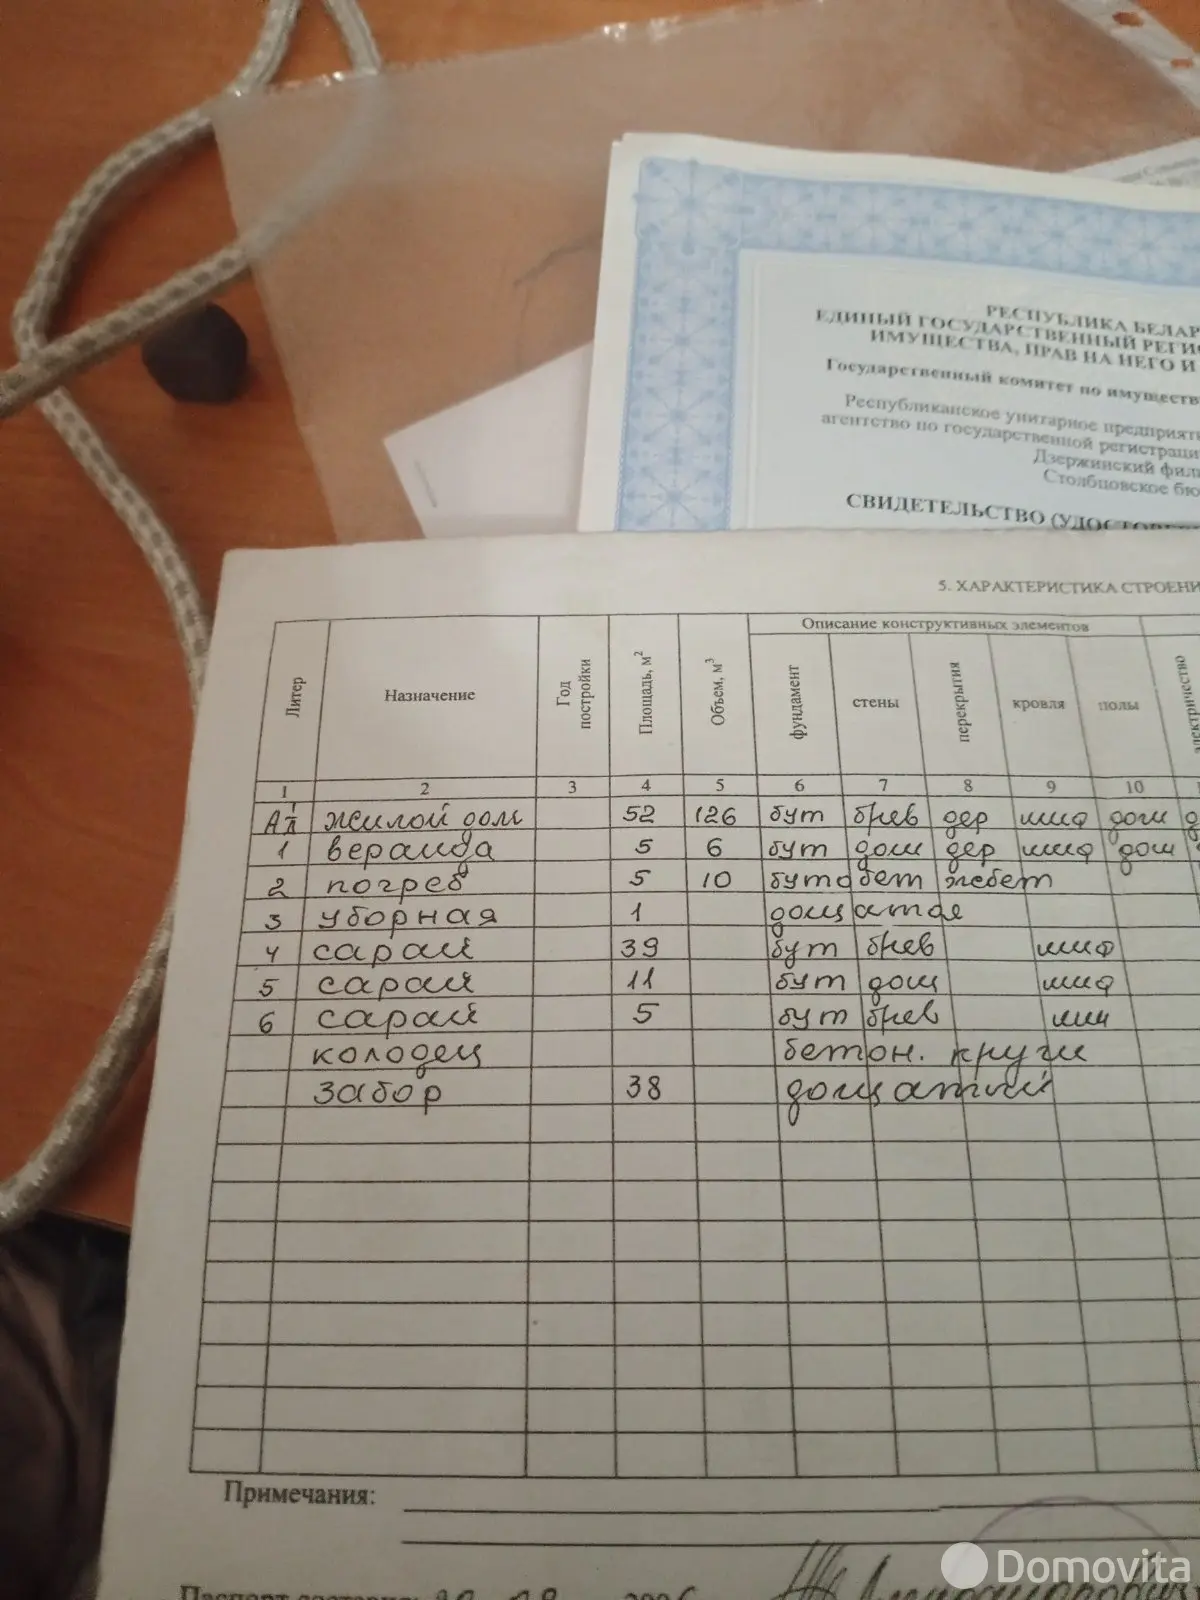 РЕСПУБЛИКА БЕЛАР
ЕДИНЫЙ ГОСУДАРСТВЕННЫЙ РЕГИС
ИМУЩЕСТВА, ПРАВ НА НЕГО И
Государственный комитет по имуществ
Республиканское унитарное предприяти
агентство по государственной регистраци
Дзержинский фил
Столбцовское бю
СВИДЕТЕЛЬСТВО (УДОСТОВЕР
5. ХАРАКТЕРИСТИКА СТРОЕНИ
Описание конструктивных элементов
Литер Назначение Год постройки Площадь, м² Объем, м³ фундамент стены перекрытия кровля полы электричество
1 2 3 4 5 6 7 8 9 10
жилой дом 52 126 бут брев дер шиф дощ
1 веранда 5 6 бут дощ дер шиф дощ
2 погреб 5 10 бутобет жебет
3 уборная 1 дощатая
4 сарай 39 бут брев шиф
5 сарай 11 бут дощ шиф
6 сарай 5 бут брев
колодец бетон. круги
забор 38 дощатый
Примечания:
Паспорт составлен:
Domovita